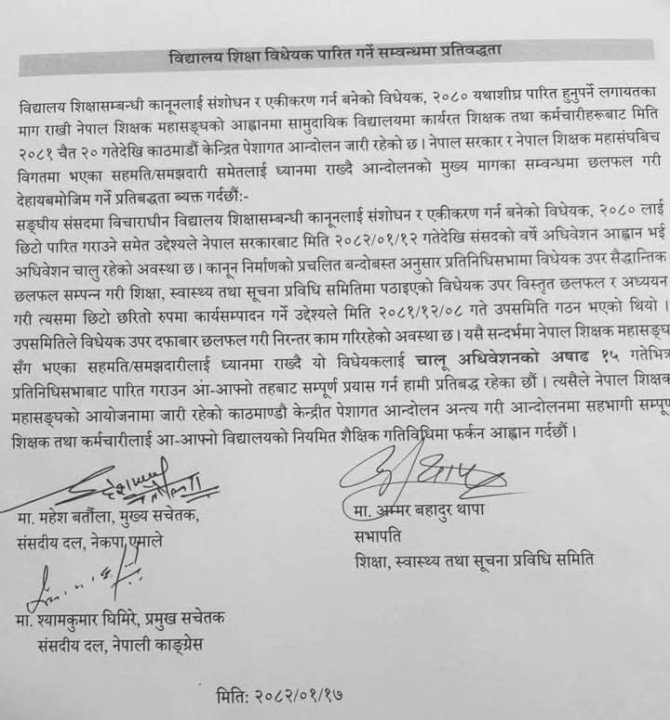 विद्यालय शिक्षा विधेयक पारित गर्ने सम्वन्धमा प्रतिवद्धता
विद्यालय शिक्षासम्बन्धी कानूनलाई संशोधन र एकीकरण गर्न बनेको विधेयक, २०८० यथाशीघ्र पारित हुनुपर्ने लगायतका
माग राखी नेपाल शिक्षक महासङ्घको आह्वानमा सामुदायिक विद्यालयमा कार्यरत शिक्षक तथा कर्मचारीहरूबाट मिति
२०८१ चैत २० गतेदेखि काठमाडौं केन्द्रित पेशागत आन्दोलन जारी रहेको छ। नेपाल सरकार र नेपाल शिक्षक महासंघबिच
विगतमा भएका सहमति/समझदारी समेतलाई ध्यानमा राख्दै आन्दोलनको मुख्य मागका सम्वन्धमा छलफल गरी
देहायबमोजिम गर्ने प्रतिबद्धता ब्यक्त गर्दछौं:-
सङ्घीय संसदमा विचाराधीन विद्यालय शिक्षासम्बन्धी कानूनलाई संशोधन र एकीकरण गर्न बनेको विधेयक, २०८० लाई
छिटो पारित गराउने समेत उद्देश्यले नेपाल सरकारबाट मिति २०८२/०१/१२ गतेदेखि संसदको वर्षे अधिवेशन आह्वान भई
अधिवेशन चालु रहेको अवस्था छ। कानून निर्माणको प्रचलित बन्दोबस्त अनुसार प्रतिनिधिसभामा विधेयक उपर सैद्धान्तिक
छलफल सम्पन्न गरी शिक्षा, स्वास्थ्य तथा सूचना प्रविधि समितिमा पठाइएको विधेयक उपर विस्तृत छलफल र अध्ययन
गरी त्यसमा छिटो छरितो रुपमा कार्यसम्पादन गर्ने उद्देश्यले मिति २०८१/१२/०८ गते उपसमिति गठन भएको थियो ।
उपसमितिले विधेयक उपर दफाबार छलफल गरी निरन्तर काम गरिरहेको अवस्था छ। यसै सन्दर्भमा नेपाल शिक्षक महासङ्घ
सँग भएका सहमति/समझदारीलाई ध्यानमा राख्दै यो विधेयकलाई चालू अधिवेशनको अषाढ १५ गतेभित्र
प्रतिनिधिसभाबाट पारित गराउन आ-आफ्नो तहबाट सम्पूर्ण प्रयास गर्न हामी प्रतिबद्ध रहेका छौं । त्यसैले नेपाल शिक्षक
महासङ्घको आयोजनामा जारी रहेको काठमाण्डौ केन्द्रीत पेशागत आन्दोलन अन्त्य गरी आन्दोलनमा सहभागी सम्पूर्ण
शिक्षक तथा कर्मचारीलाई आ-आफ्नो विद्यालयको नियमित शैक्षिक गतिविधिमा फर्कन आह्वान गर्दछौं ।
मा. महेश बर्तौला, मुख्य सचेतक,
संसदीय दल, नेकपा एमाले
मा. अम्मर बहादुर थापा
सभापति
शिक्षा, स्वास्थ्य तथा सूचना प्रविधि समिति
मा. श्यामकुमार घिमिरे, प्रमुख सचेतक
संसदीय दल, नेपाली काङ्ग्रेस
मिति: २०८२/०१/१७